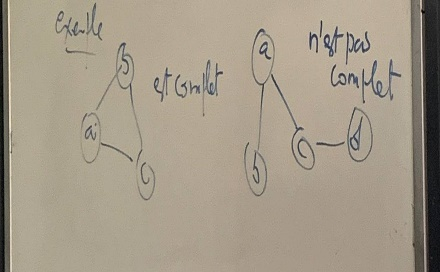 exemple
b
est complet
a
c
a
n'est pas
complet
b
c
d